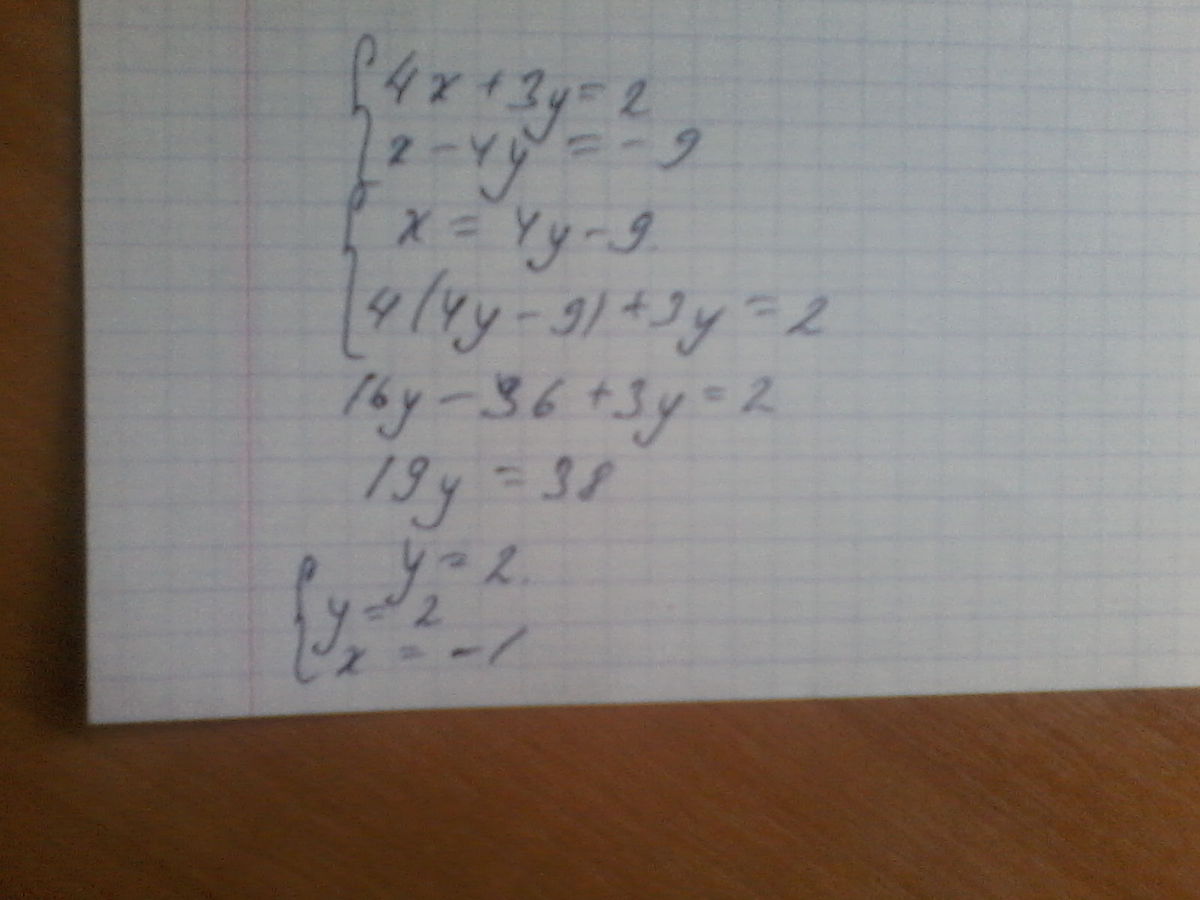 4x + 3y = 2
x - 4y = - 9
x = 4y - 9
4(4y - 9) + 3y = 2
16y - 36 + 3y = 2
19y = 38
y = 2.
y = 2
x = -1